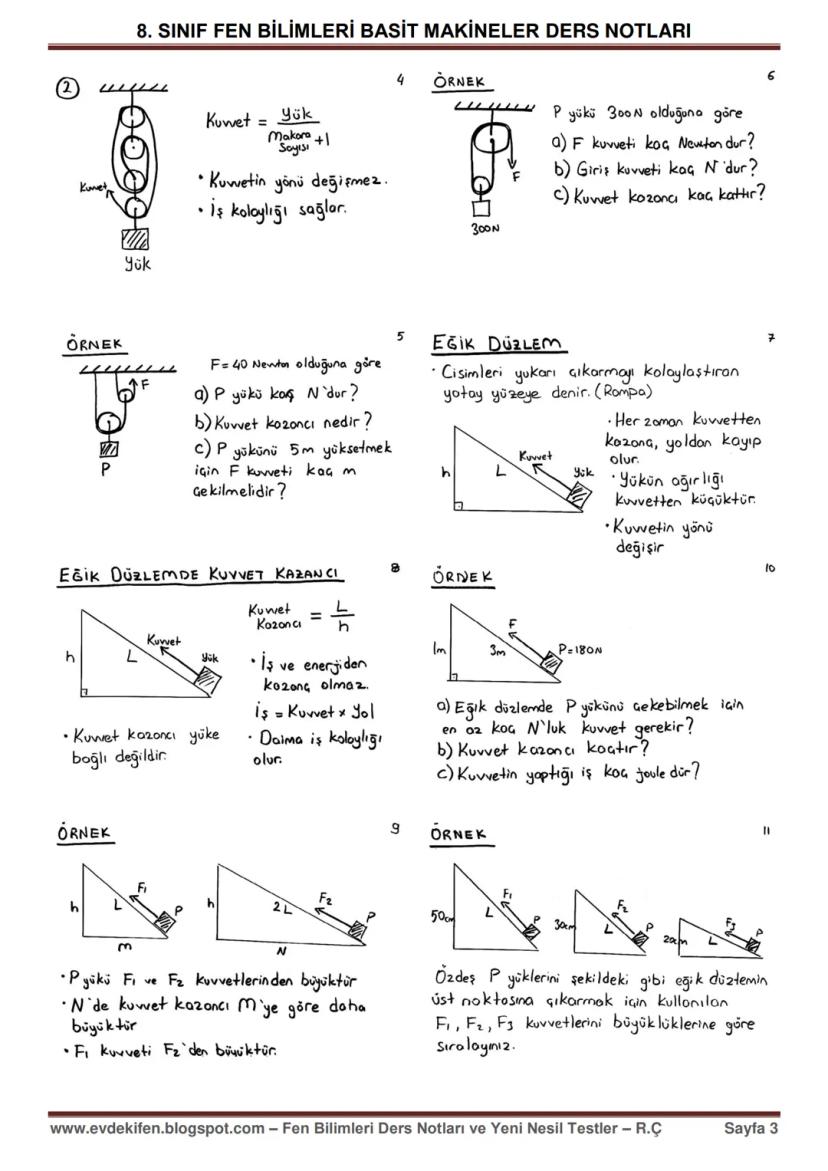 8. SINIF FEN BİLİMLERİ BASİT MAKİNELER DERS NOTLARI
2
4
Kuvvet = Yük
Makara Sayısı +1
• Kuvvetin yönü değişmez.
• İş kolaylığı sağlar.
Kuvvet
Yük
ÖRNEK
5
F= 40 Newton olduğuna göre
a) P yükü kaç N'dur?
b) Kuvvet kazancı nedir?
c) P yükünü 5m yükseltmek
için F kuvveti kaç m
çekilmelidir?
F
P
EĞİK DÜZLEMDE KUVVET KAZANCI
8
Kuvvet Kazancı = L
h
• İş ve enerjiden
kazanç olmaz.
İş = Kuvvet x Yol
• Daima iş kolaylığı
olur.
h
L
Kuvvet
Yük
• Kuvvet kazancı yüke
bağlı değildir.
ÖRNEK
9
h
L
F1
P
M
h
2L
F2
P
N
• P yükü F1 ve F2 kuvvetlerinden büyüktür
• N'de kuvvet kazancı M'ye göre daha
büyüktür
• F1 kuvveti F2'den büyüktür.
ÖRNEK
6
P yükü 300N olduğuna göre
a) F kuvveti kaç Newton dur?
b) Giriş kuvveti kaç N'dur?
c) Kuvvet kazancı kaç kattır?
F
300N
EĞİK DÜZLEM
7
• Cisimleri yukarı çıkarmayı kolaylaştıran
yatay yüzeye denir. (Rampa)
• Her zaman kuvvetten
kazanç, yoldan kayıp
olur.
• Yükün ağırlığı
kuvvetten küçüktür.
• Kuvvetin yönü
değişir
h
L
Kuvvet
Yük
ÖRNEK
10
1m
3m
F
P=180N
a) Eğik düzlemde P yükünü çekebilmek için
en az kaç N'luk kuvvet gerekir?
b) Kuvvet kazancı kaçtır?
c) Kuvvetin yaptığı iş kaç joule dür?
ÖRNEK
11
50cm
L
F1
P
30cm
L
F2
P
20cm
L
F3
P
Özdeş P yüklerini şekildeki gibi eğik düzlemin
üst noktasına çıkarmak için kullanılan
F1, F2, F3 kuvvetlerini büyüklüklerine göre
sıralayınız.
www.evdekifen.blogspot.com – Fen Bilimleri Ders Notları ve Yeni Nesil Testler – R.Ç
Sayfa 3